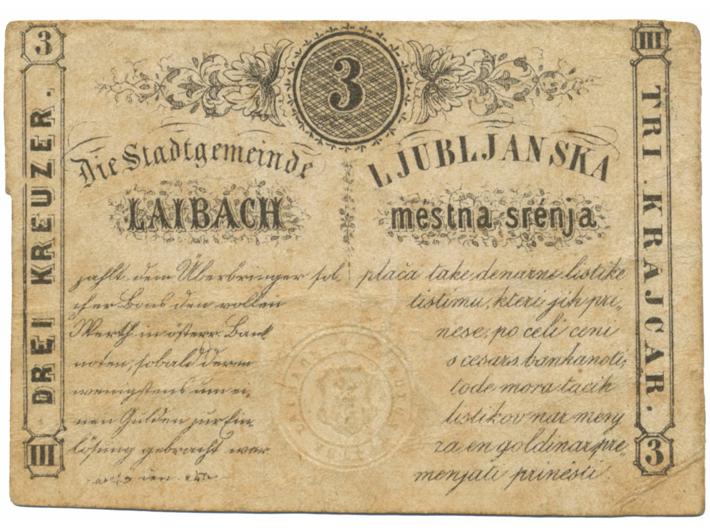 3
III
3
DREI KREUZER.
TRI KRAJCAR.
Die Stadtgemeinde
LAIBACH
zahlt dem Überbringer sol
cher Bons den vollen
Werth in österr. Bank
noten, sobald deren
wenigstens um ei,
nen Gulden zur Ein,
lösung gebracht wer
LJUBLJANSKA
méstna srénja
plača take denarne listike
tistimu, kteri jih pri,
nese, po celi ceni
s cesars. bankanoti;
tode mora tacih
listikov nar menj
za en goldinar pre
menjati prinésti.
III
3